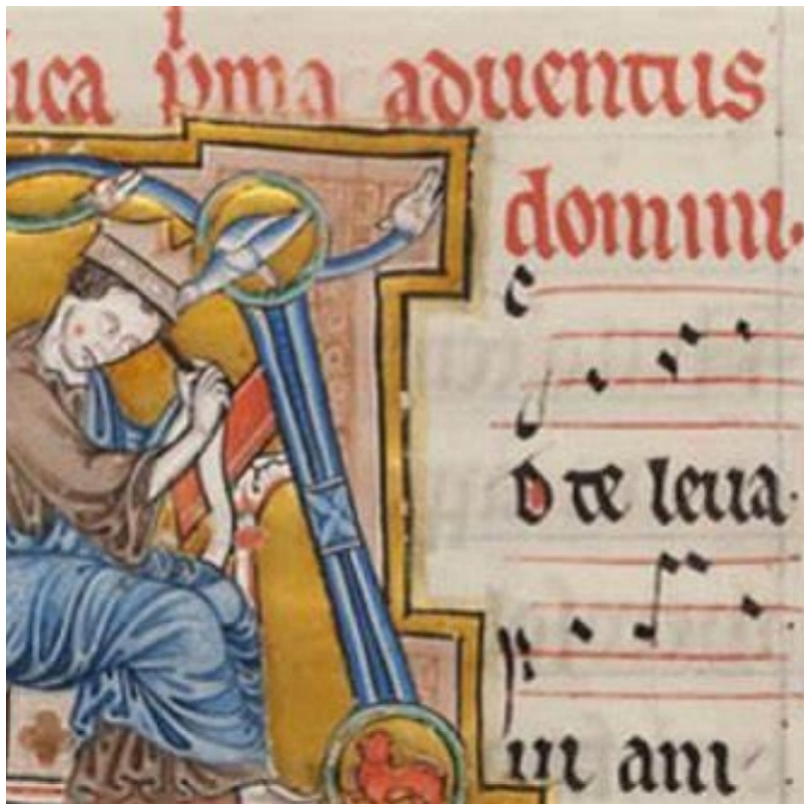 ica pma aduentus
domini.
D te leua
in ani